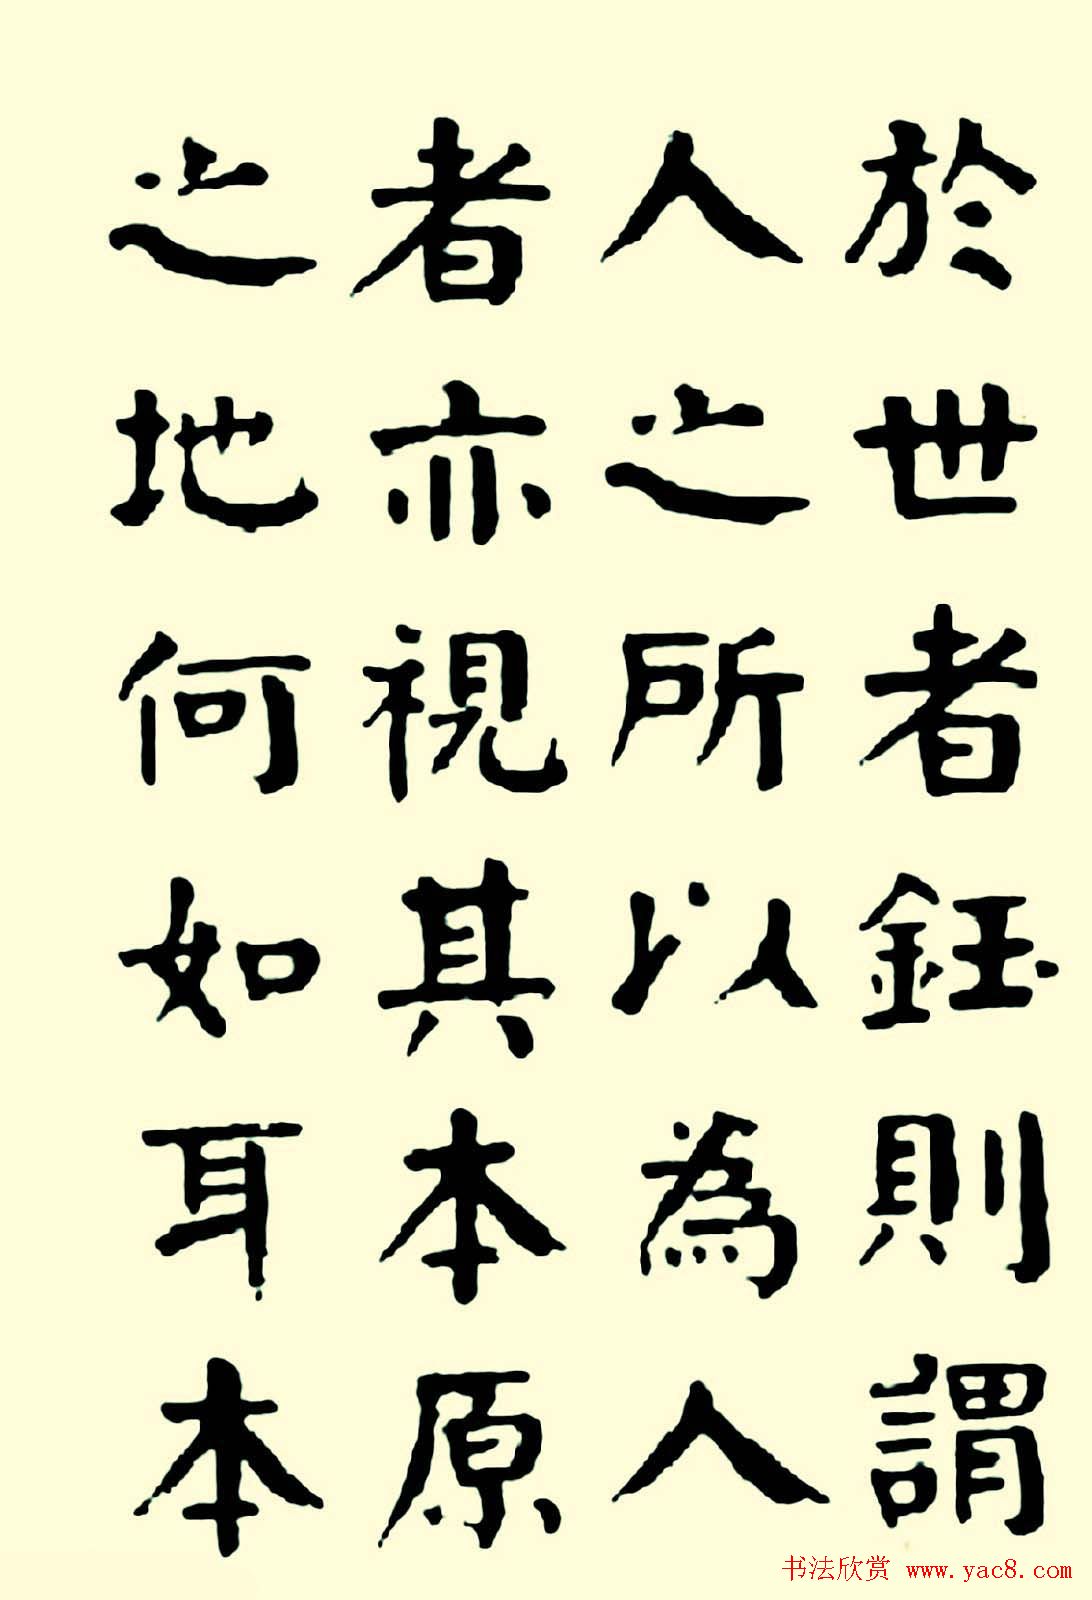 於世者鈺則謂
人之所以為人
者亦視其本原
之地何如耳本
书法欣赏 www.yac8.com